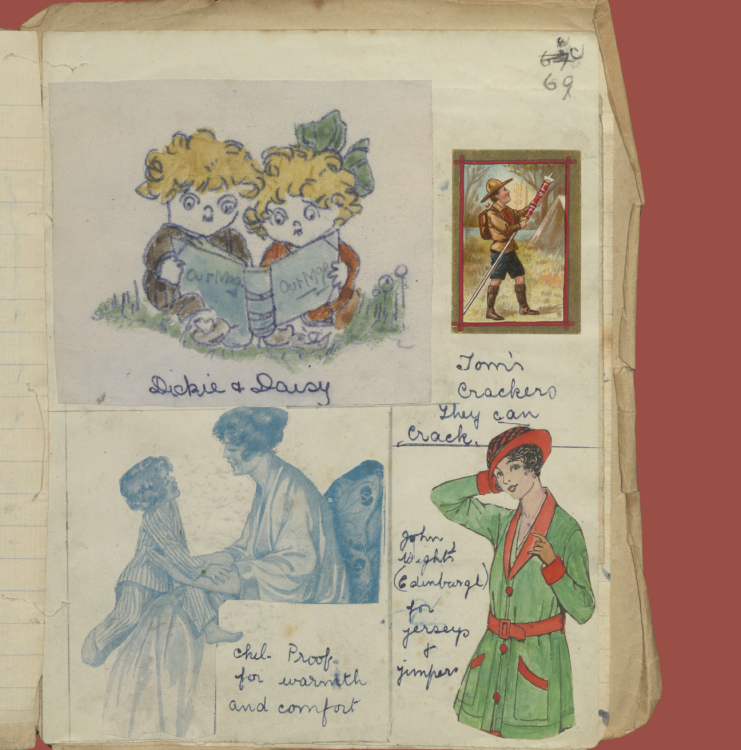 69
Our Mag.
Our Mag.
Dickie & Daisy
Tom's
Crackers
They can
Crack.
John
Wight
(Edinburgh)
for
jerseys
&
jumpers
chil- Proof
for warmth
and comfort